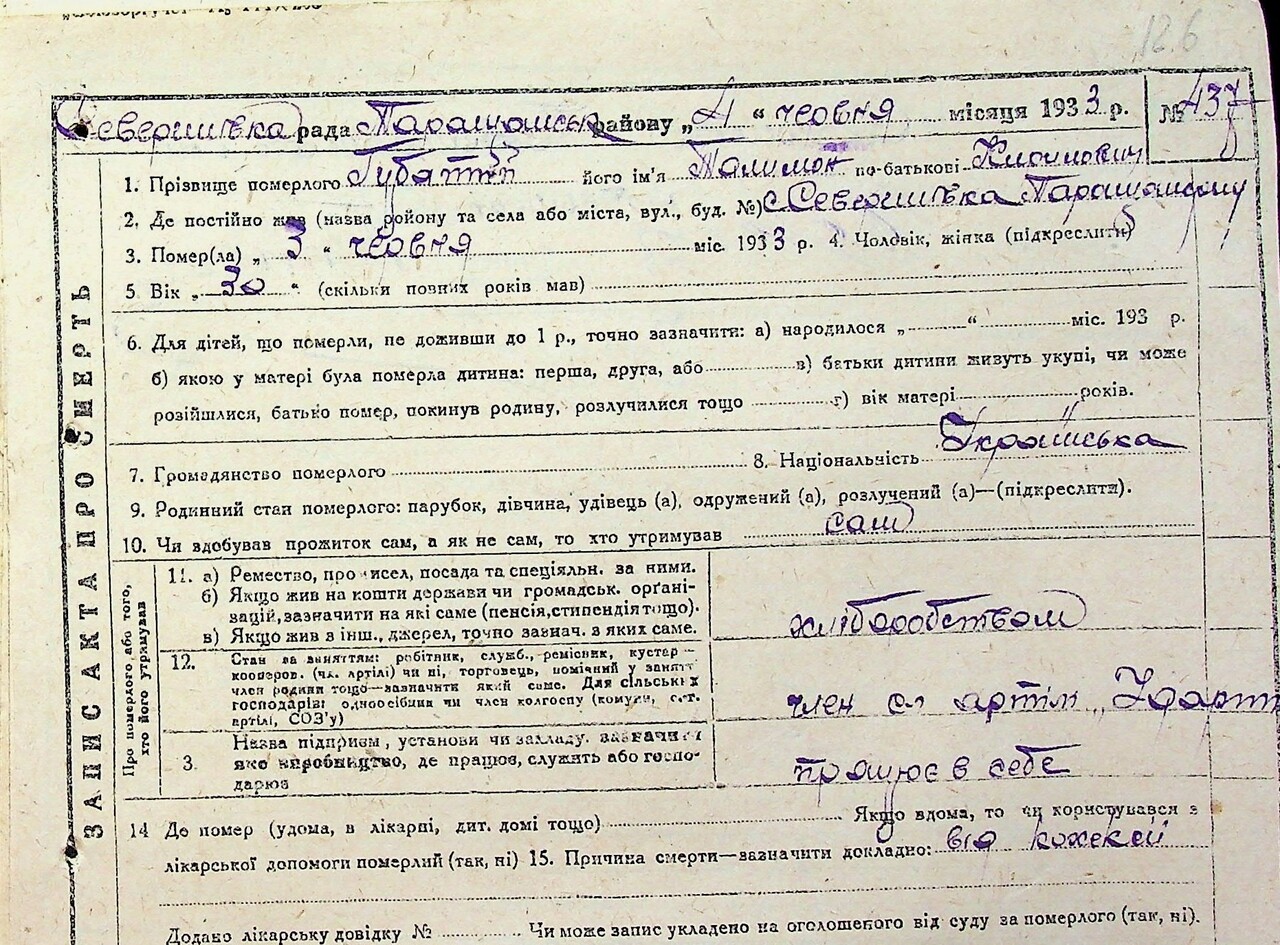 126
Северинівка рада Таращанськ району „4 “ червня місяця 1933 р. № 437
1. Прізвище померлого Губатий його ім'я по-батькові
2. Де постійно жив (назва району та села або міста, вул., буд. №) с Северинівка Таращанського
3. Помер(ла) „ 3 “ червня міс. 1933 р. 4. Чоловік, жінка (підкреслити)
5 Вік „ 30 “ (скільки повних років мав)
6. Для дітей, що померли, не доживши до 1 р., точно зазначити: а) народилося „ “ міс. 193 р.
б) якою у матері була померла дитина: перша, друга, або в) батьки дитини живуть укупі, чи може
розійшлися, батько помер, покинув родину, розлучилися тощо г) вік матері років.
7. Громадянство померлого 8. Національність Українська
9. Родинний стан померлого: парубок, дівчина, удівець (а), одружений (а), розлучений (а)—(підкреслити).
10. Чи здобував прожиток сам, а як не сам, то хто утримував сам
ЗАПИС АКТА ПРО СМЕРТЬ
Про померлого або того, хто його утримував
11. а) Ремество, про исел, посада та спеціяльн. за ними.
б) Якщо жив на кошти держави чи громадськ. орґані-
зацій, зазначити на які саме (пенсія, стипендія тощо).
в) Якщо жив з інш., джерел, точно зазнач. з яких саме.
хліборобством
12. Стан за заняттям: робітник, служб., ремісник, кустар—
кооперов. (чл. артілі) чи ні, торговець, помічний у занятт
член родини тощо—зазначити який саме. Для сільських
господарів: одноосібник чи член колгоспу (комуни, с.-г.
артілі, СОЗ'у)
член сг артіли „
3. Назва підприєм, установи чи закладу, зазначити
яке виробництво, де працює, служить або госпо-
дарює
працює в себе
14 Де помер (удома, в лікарні, дит. домі тощо) Якщо вдома, то чи користувався з
лікарської допомоги померлий (так, ні) 15. Причина смерти—зазначити докладно: від
Додано лікарську довідку № Чи може запис укладено на оголошеного від суду за померлого (так, ні).